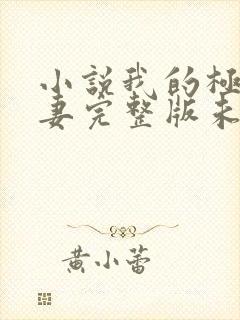 小説我的極
妻完整版未
黄小蕾